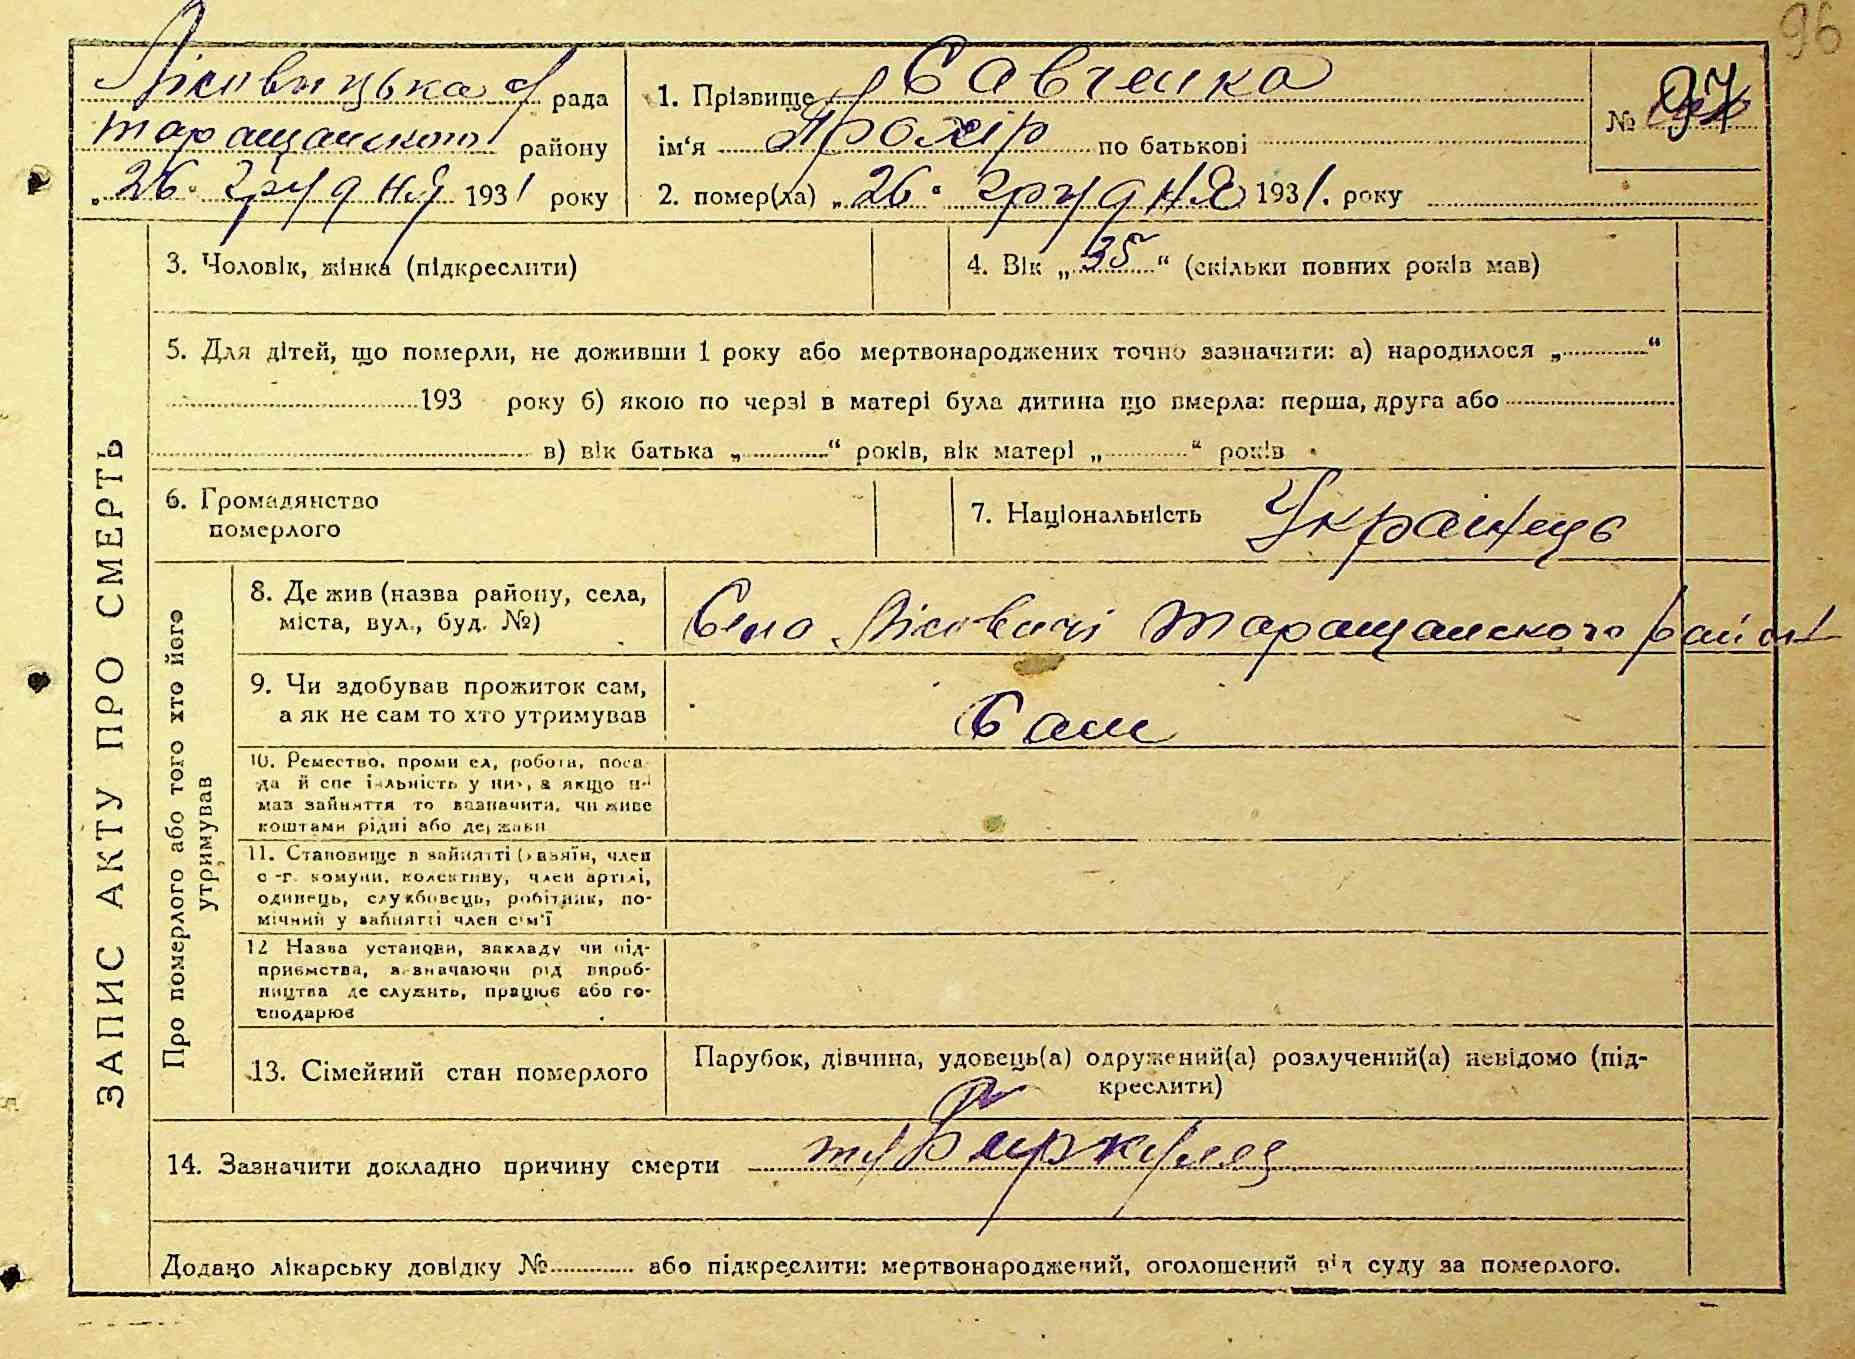 96
Лісовицька с/ рада
таращанского району
„26“ грудня 1931 року
1. Прізвище Савченко
ім'я Прохір по батькові
2. помер(ла) „26“ грудня 1931. року
№ 97
ЗАПИС АКТУ ПРО СМЕРТЬ
3. Чоловік, жінка (підкреслити)
4. Вік „35“ (скільки повних років мав)
5. Для дітей, що померли, не доживши 1 року або мертвонароджених точно зазначити: а) народилося „ “
193 року б) якою по черзі в матері була дитина що вмерла: перша, друга або
в) вік батька „ “ років, вік матері „ “ років
6. Громадянство
померлого
7. Національність Українець
Про померлого або того хто його
утримував
8. Де жив (назва району, села,
міста, вул., буд. №)
Село Лісовичі Таращанского район
9. Чи здобував прожиток сам,
а як не сам то хто утримував
Сам
10. Ремество, промисел, робота, поса-
да й спеціальність у них, а якщо не
мав зайняття то вазначити, чи живе
коштами рідні або держави
11. Становище в зайнятті (хазяїн, член
с.-г. комуни, колективу, член артілі,
одинець, службовець, робітник, по-
мічний у зайнятті член сім'ї
12 Назва установи, закладу чи під-
приємства, зазначаючи рід вироб-
ництва де служить, працює або го-
сподарює
13. Сімейний стан померлого
Парубок, дівчина, удовець(а) одружений(а) розлучений(а) невідомо (під-
креслити)
14. Зазначити докладно причину смерти
Додано лікарську довідку № або підкреслити: мертвонароджений, оголошений від суду за померлого.